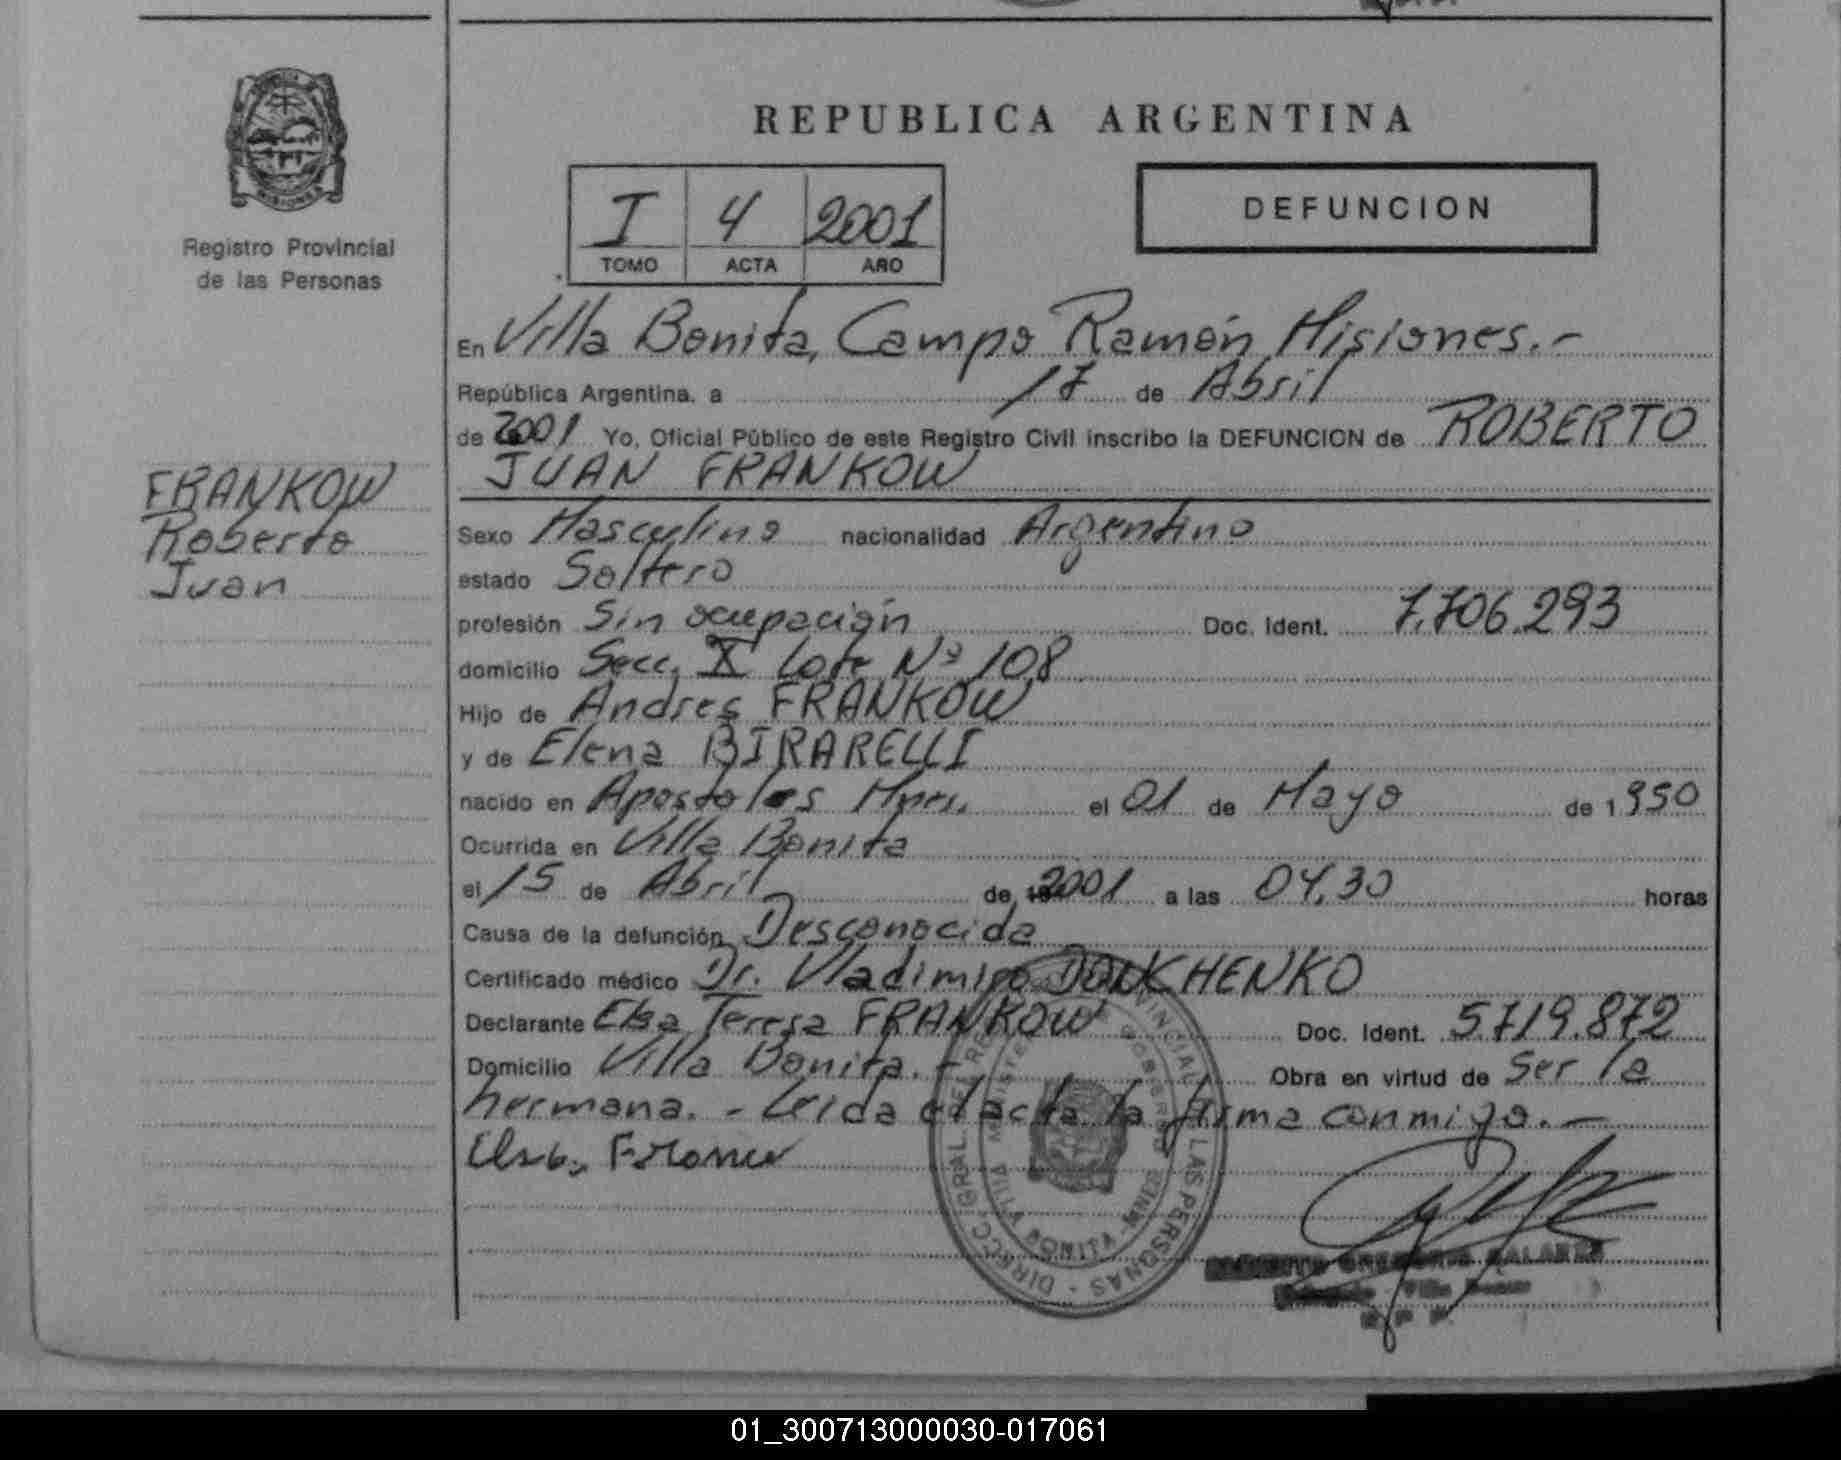 REPUBLICA ARGENTINA
MISIONES
Registro Provincial
de las Personas
I 4 2001
TOMO ACTA AÑO
DEFUNCION
En Villa Bonita, Campo Ramón, Misiones.-
República Argentina. a 17 de Abril
de 2001 Yo, Oficial Público de este Registro Civil inscribo la DEFUNCION de ROBERTO
JUAN FRANKOW
FRANKOW
Roberto
Juan
Sexo Masculino nacionalidad Argentino
estado Soltero
profesión Sin ocupación Doc. Ident. 7.706.293
domicilio Secc. X Lote Nº 108
Hijo de Andres FRANKOW
y de Elena BIRARELLI
nacido en Apostoles Mnes. el 01 de Mayo de 1950
Ocurrida en Villa Bonita
el 15 de Abril de 2001 a las 04,30 horas
Causa de la defunción Desconocida
Certificado médico Dr. Vladimiro
Declarante Elsa Teresa FRANKOW Doc. Ident. 5.719.872
Domicilio Villa Bonita.- Obra en virtud de Ser la
hermana.- Leida el acta la firma conmigo.-
DIRECC. GRAL. DEL REG. PROVINCIAL DE LAS PERSONAS
VILLA BONITA - MNES
01_300713000030-017061